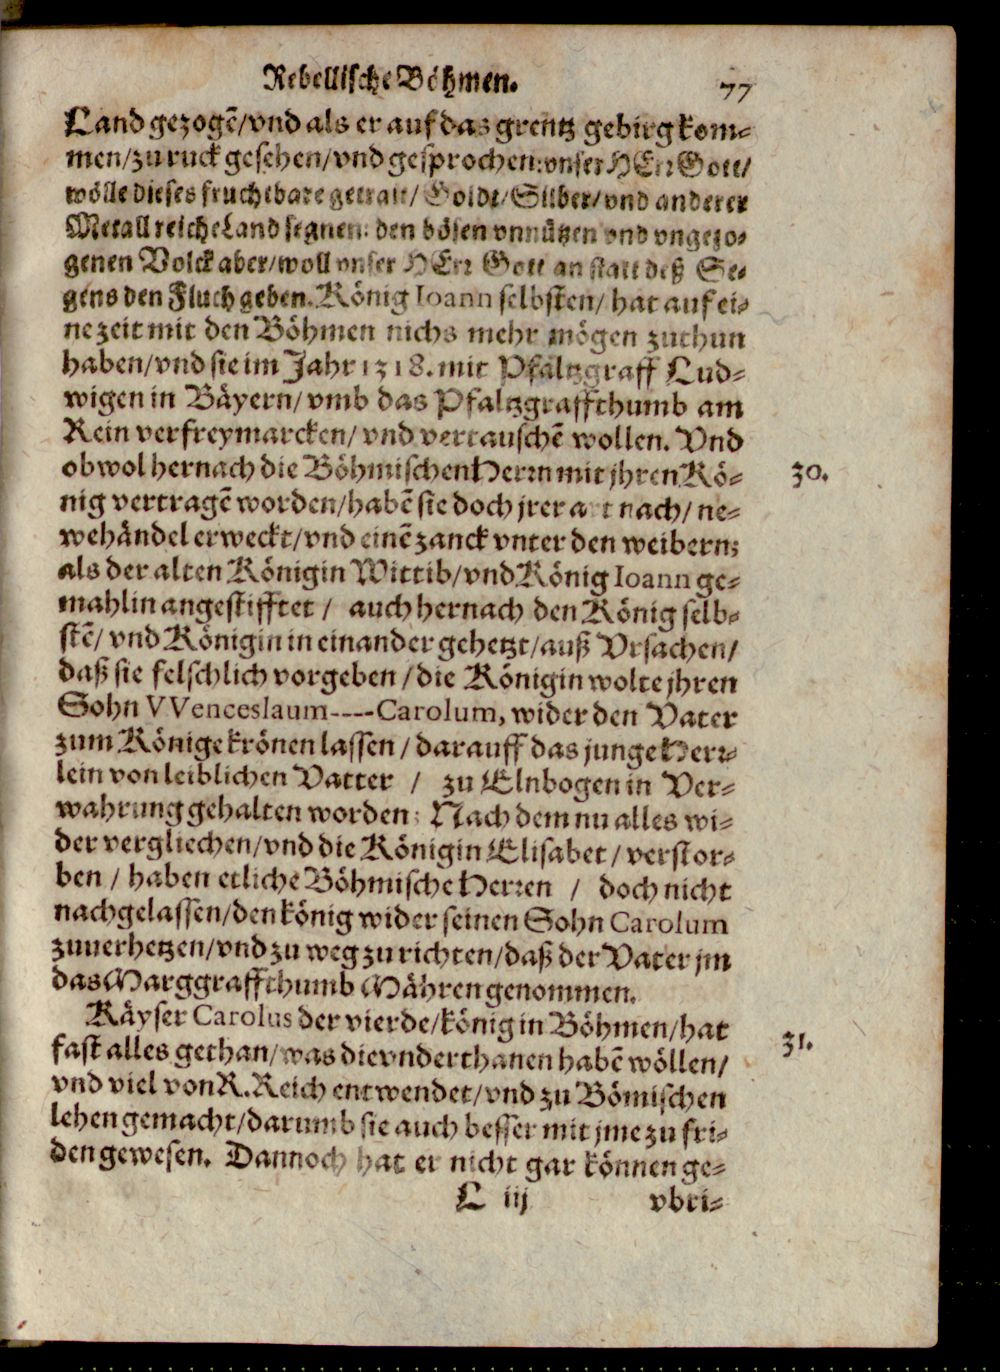 Rebellische Böhmen. 77
Land gezogẽ/vnd als er auf das grentz gebirg kom-
men/zu ruck gesehen/vnd gesprochen: vnser HErr Gott/
wölle dieses fruchtbare getrait/ Goldt/Silber/vnd anderer
Metall reiche Land segnen: den bösen vnnützen vnd vngezo-
genen Volck aber/woll vnser HErr Gott an statt deß Se-
gens den Fluch geben. König Ioann selbsten/ hat auf ei-
ne zeit mit den Böhmen nichs mehr mögen zuthun
haben/vnd sie im Jahr 1318. mit Pfaltzgraff Lud-
wigen in Bäyern/ vmb das Pfaltzgraffthumb am
Rein verfreymarcken/ vnd vertauschẽ wollen. Vnd
obwol hernach die Böhmischen Herrn mit jhren Kö- 30.
nig vertragẽ worden/habẽ sie doch jrer art nach/ ne-
we händel erweckt/vnd einẽ zanck vnter den weibern;
als der alten Königin Wittib/vnd König Ioann ge-
mahlin angestifftet / auch hernach den König selb-
stẽ/ vnd Königin in einander gehetzt/auß Vrsachen/
daß sie felschlich vorgeben /die Königin wolte jhren
Sohn VVenceslaum----Carolum, wider den Vater
zum Könige krönen lassen / darauff das junge Herr-
lein von leiblichen Vatter / zu Elnbogen in Ver-
wahrung gehalten worden: Nach dem nu alles wi-
der vergliechen/vnd die Königin Elisabet / verstor-
ben / haben etliche Böhmische Herren / doch nicht
nachgelassen/den könig wider seinen Sohn Carolum
zuuerhetzen/vnd zu weg zu richten/daß der Vater jm
das Marggraffthumb Mähren genommen.
Käyser Carolus der vierde/könig in Böhmen/hat
fast alles gethan/was die vnderthanen habẽ wöllen/ 31.
vnd viel von R. Reich entwendet/vnd zu Bömischen
lehen gemacht/darumb sie auch besser mit jme zu fri-
den gewesen. Dannoch hat er nicht gar können ge-
L iij vbri-